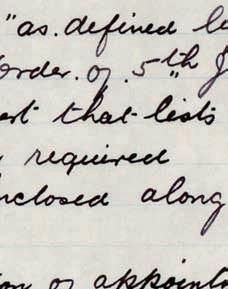 "as defined
Order. of. 5th
that lists
required
enclosed along
of